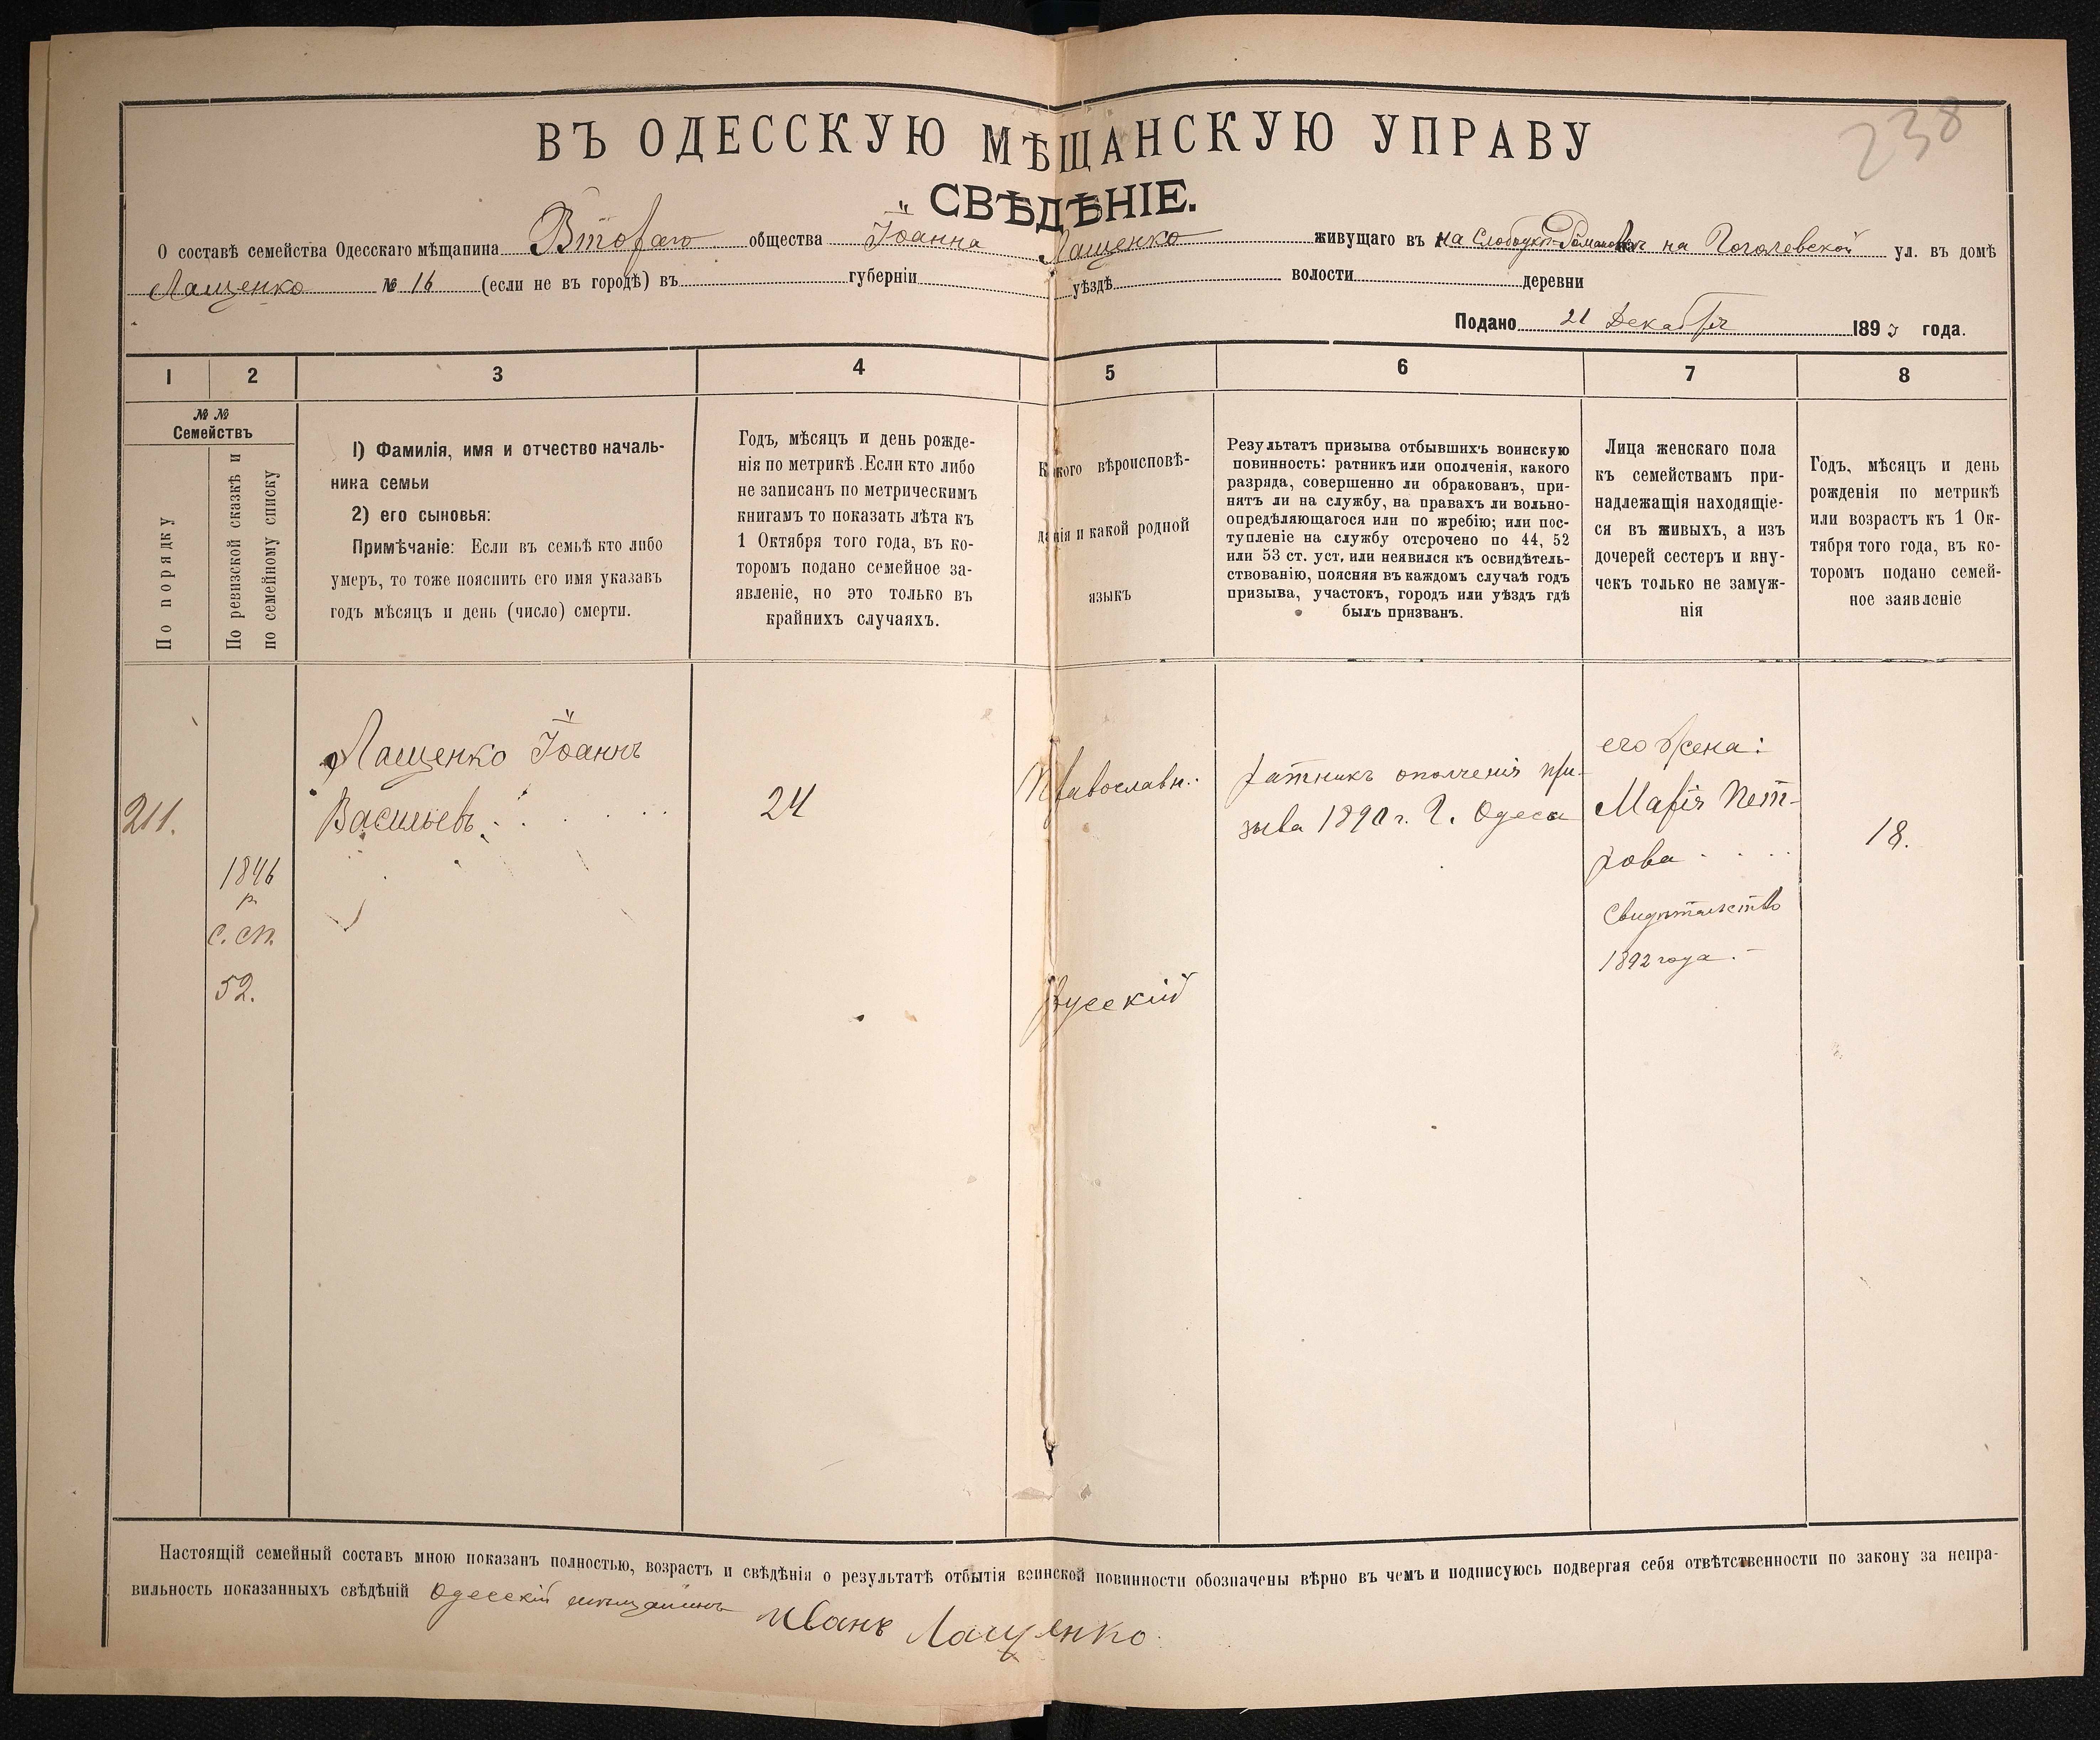 238
ВЪ ОДЕССКУЮ МѢЩАНСКУЮ УПРАВУ
СВѢДѢНІЕ.
О составѣ семейства Одесскаго мѣщанина Втораго общества Іоанна Лащенко живущаго въ на Слободкѣ-Романовкѣ на Гоголевской ул. въ домѣ
Лащенко № 16 (если не въ городѣ) въ губерніи уѣздѣ волости деревни
Подано 21 Декабря 1893 года.
1 2 3 4 5 6 7 8
№ №
Семействъ
По порядку
По ревизской сказкѣ и
по семейному списку
1) Фамилія, имя и отчество началь-
ника семьи
2) его сыновья:
Примѣчаніе: Если въ семьѣ кто либо
умеръ, то тоже пояснить его имя указавъ
годъ мѣсяцъ и день (число) смерти.
Годъ, мѣсяцъ и день рожде-
нія по метрикѣ .Если кто либо
не записанъ по метрическимъ
книгамъ то показать лѣта къ
1 Октября того года, въ ко-
торомъ подано семейное за-
явленіе, но это только въ
крайнихъ случаяхъ.
Какого вѣроисповѣ-
данія и какой родной
языкъ
Результатъ призыва отбывшихъ воинскую
повинность: ратникъ или ополченія, какого
разряда, совершенно ли обракованъ, при-
нятъ ли на службу, на правахъ ли вольно-
опредѣляющагося или по жребію; или пос-
тупленіе на службу отсрочено по 44, 52
или 53 ст. уст, или неявился къ освидѣтель-
ствованію, поясняя въ каждомъ случаѣ годъ
призыва, участокъ, городъ или уѣздъ гдѣ
былъ призванъ.
Лица женскаго пола
къ семействамъ при-
надлежащія находящіе-
ся въ живыхъ, а изъ
дочерей сестеръ и вну-
чекъ только не замуж-
нія
Годъ, мѣсяцъ и день
рожденія по метрикѣ
или возрастъ къ 1 Ок-
тября того года, въ ко-
торомъ подано семей-
ное заявленіе
211.
1846
р.
с. сп.
52.
Лащенко Іоаннъ
Васильевъ
24
Православн.
русскій
ратникъ ополченія при-
зыва 1890 г. Г. Одеса
его жена:
Марія Пет-
рова
Свидѣтельство
1892 года.
18.
Настоящій семейный составъ мною показанъ полностью, возрастъ и свѣдѣнія о результатѣ отбытія воинской повинности обозначены вѣрно въ чемъ и подписуюсь подвергая себя отвѣтственности по закону за непра-
вильность показанныхъ свѣдѣній Одесскій мѣщанинъ Иванъ Лащенко